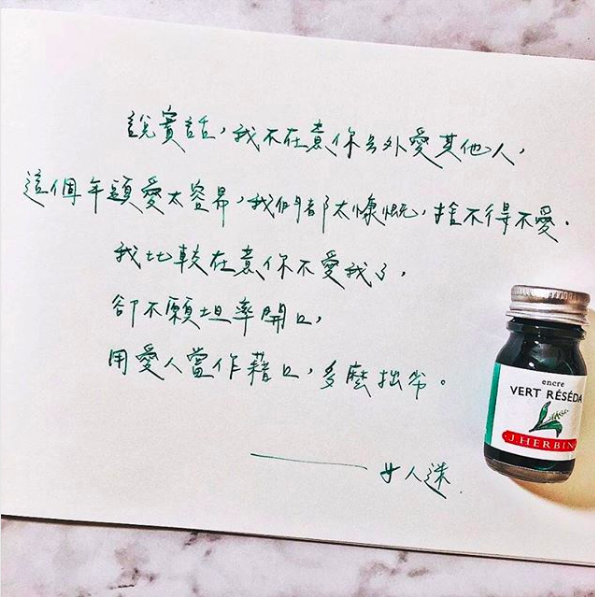 說實話，我不在意你另外愛其他人，
這個年頭愛太容易，我們都太慷慨，捨不得不愛．
我比較在意你不愛我了，
卻不願坦率開口，
用愛人當作藉口，多麼拙劣。
——女人迷．
encre
VERT RÉSÉDA
J. HERBIN